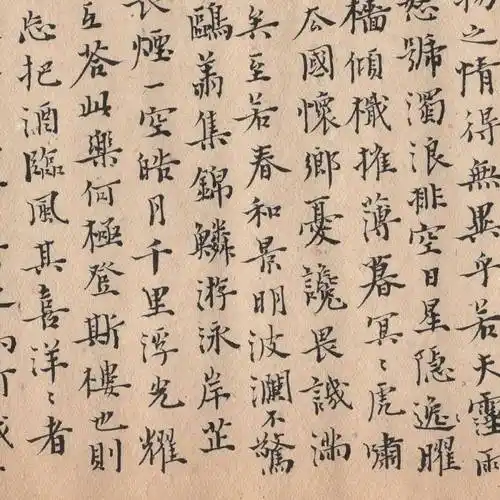 物之情得無異乎若夫霪雨
怒號濁浪排空日星隱逸曜
檣傾檝摧薄暮冥〻虎嘯
去國懷鄉憂讒畏譏滿
矣至若春和景明波瀾不驚
鷗翔集錦鱗游泳岸芷
長煙一空皓月千里浮光耀
互答此樂何極登斯樓也則
忘把酒臨風其喜洋〻者